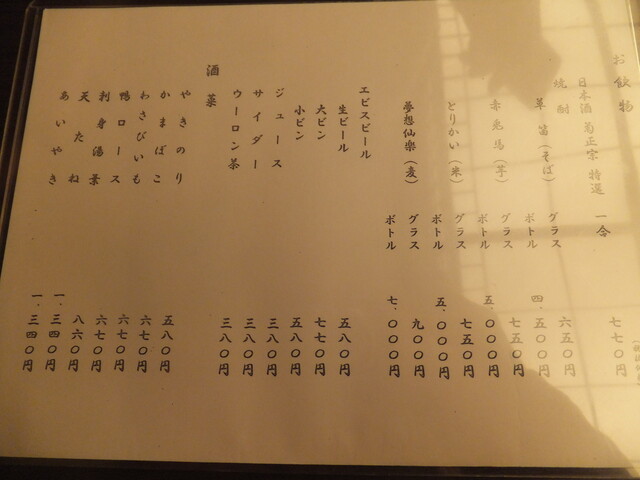 お飲物
日本酒 菊正宗 特選 一合 七七〇円
焼酎
草笛(そば) グラス 六五〇円
ボトル 四、五〇〇円
赤兎馬(芋) グラス 七五〇円
ボトル 五、〇〇〇円
とりかい(米) グラス 七五〇円
ボトル 五、〇〇〇円
夢想仙樂(麦) グラス 九〇〇円
ボトル 七、〇〇〇円
エビスビール
生ビール 五八〇円
大ビン 七七〇円
小ビン 五八〇円
ジュース 三八〇円
サイダー 三八〇円
ウーロン茶 三八〇円
酒菜
やきのり 五八〇円
かまぼこ 六七〇円
わさびいも 六七〇円
鴨ロース 六七〇円
刺身湯葉 八六〇円
天たね 一、三四〇円
あいやき 一、三四〇円